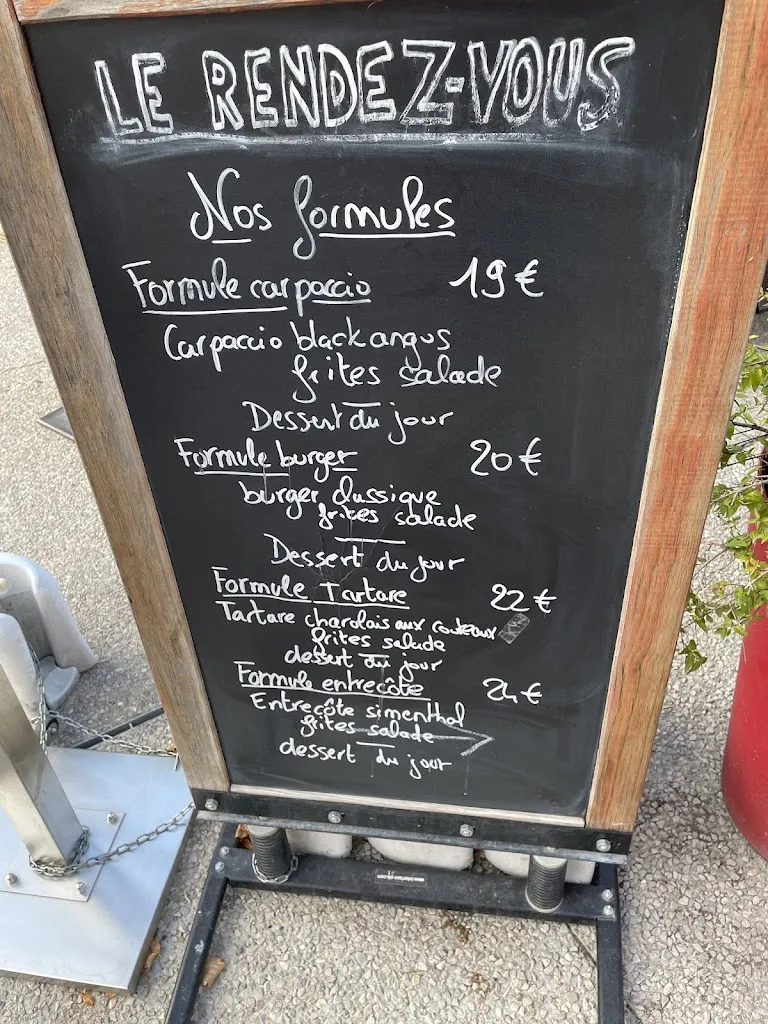 LE RENDEZ-VOUS
Nos formules
Formule carpaccio 19€
Carpaccio black angus
frites salade
Dessert du jour
Formule burger 20€
burger classique
frites salade
Dessert du jour
Formule Tartare 22€
Tartare charolais aux couteaux
frites salade
dessert du jour
Formule entrecôte 24€
Entrecôte simenthal
frites salade
dessert du jour